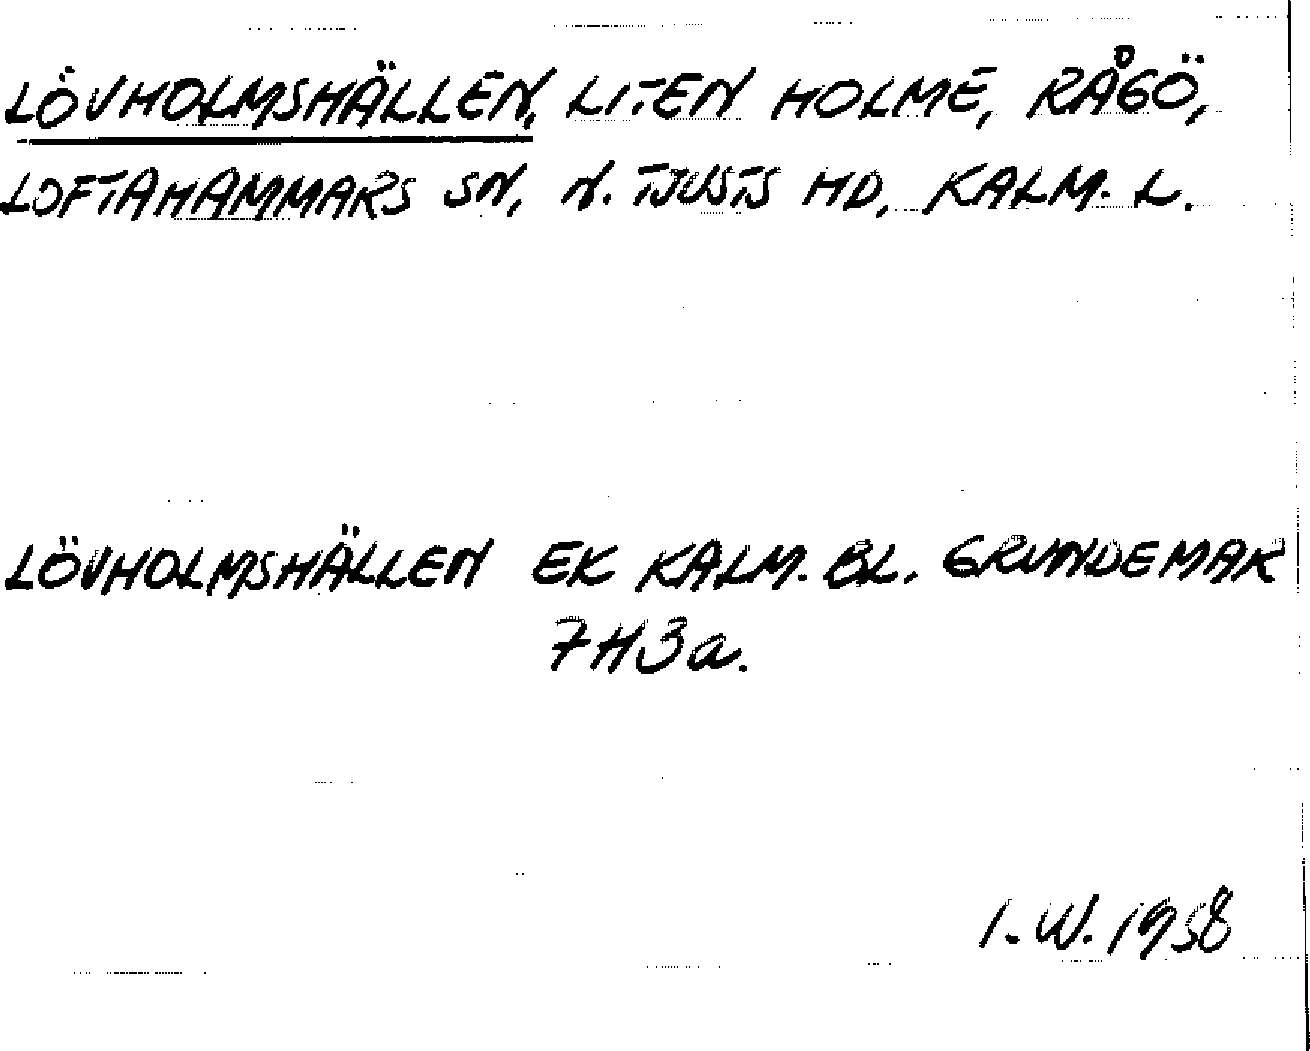 LÖVHOLMSHÄLLEN, LITEN HOLME, RÅGÖ,
LOFTAHAMMARS SN, N. TJUSTS HD, KALM. L.
LÖVHOLMSHÄLLEN EK KALM. BL. GRUNDEMAR
7H3a.
I.W. 1958